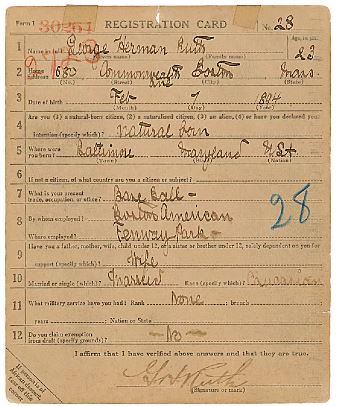 Form 1 REGISTRATION CARD No. 28
Age, in yrs.
1 Name in full George Herman Ruth 23
(Given name) (Family name)
2 Home address 680 Commonwealth Ave Boston Mass.
(No.) (Street) (City) (State)
3 Date of birth Feb 7 1894
(Month) (Day) (Year)
4 Are you (1) a natural-born citizen, (2) a naturalized citizen, (3) an alien, (4) or have you declared your
intention (specify which)? Natural born
5 Where were you born? Baltimore Maryland U.S.A
(Town) (State) (Nation)
6 If not a citizen, of what country are you a citizen or subject?
7 What is your present trade, occupation, or office? Base Ball -
8 By whom employed? Boston American
Where employed? Fenway Park -
28
9 Have you a father, mother, wife, child under 12, or a sister or brother under 12, solely dependent on you for
support (specify which)? Wife
10 Married or single (which)? Married Race (specify which)? Caucasian
11 What military service have you had? Rank None ; branch
years ; Nation or State
12 Do you claim exemption from draft (specify grounds)? - No -
I affirm that I have verified above answers and that they are true.
G H Ruth
(Signature or mark)
If person is of African descent, tear off this corner